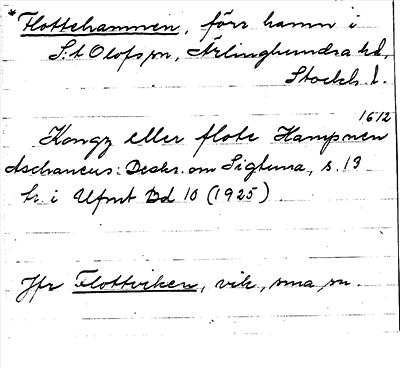 *Flottehamnen, förr hamn i
S:t Olofs sn, Ärlinghundra hd,
Stockh. l.
1612
Kongz eller flote Hampnen
Aschaneus: Beskr. om Sigtuna, s. 13
tr. i Ufmt Bd 10 (1925)
Jfr Flottviken, vik, sma sn.